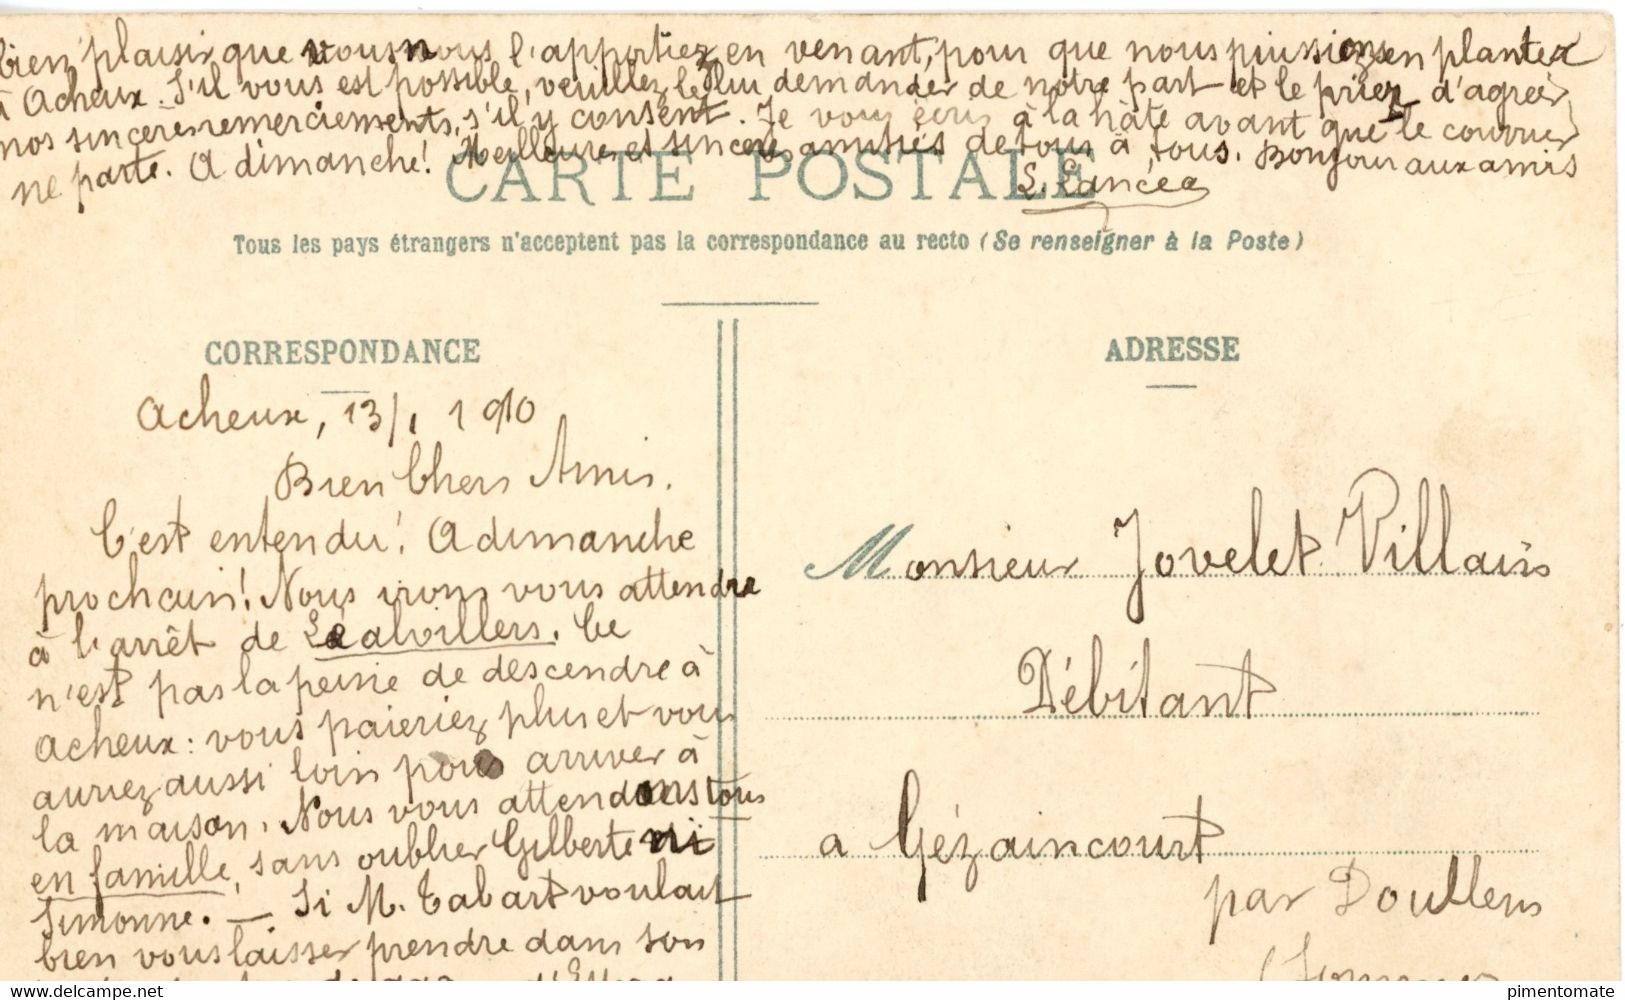 bien plaisir que vous nous l'apportiez en venant, pour que nous puissions en planter
à Acheux. S'il vous est possible, veuillez le lui demander de notre part et le prier d'agréer
nos sincères remerciements, s'il y consent. Je vous écris à la hâte avant que le courrier
ne parte. A dimanche! Meilleures et sincères amitiés de tous à tous. Bonjour aux amis
L. Lancéa
CARTE POSTALE
Tous les pays étrangers n'acceptent pas la correspondance au recto (Se renseigner à la Poste)
CORRESPONDANCE
Acheux, 13/1 1910
Bien Chers Amis.
C'est entendu! A dimanche
prochain! Nous irons vous attendre
à l'arrêt de Léalvillers. Ce
n'est pas la peine de descendre à
Acheux: vous paieriez plus et vous
auriez aussi loin pour arriver à
la maison. Nous vous attendons tous
en famille, sans oublier Gilberte ni
Simonne. — Si M. Tabart voulait
bien vous laisser prendre dans son
ADRESSE
Monsieur Jovelet Villain
Débitant
à Gézaincourt
par Doullens
(Somme)
pimentomate